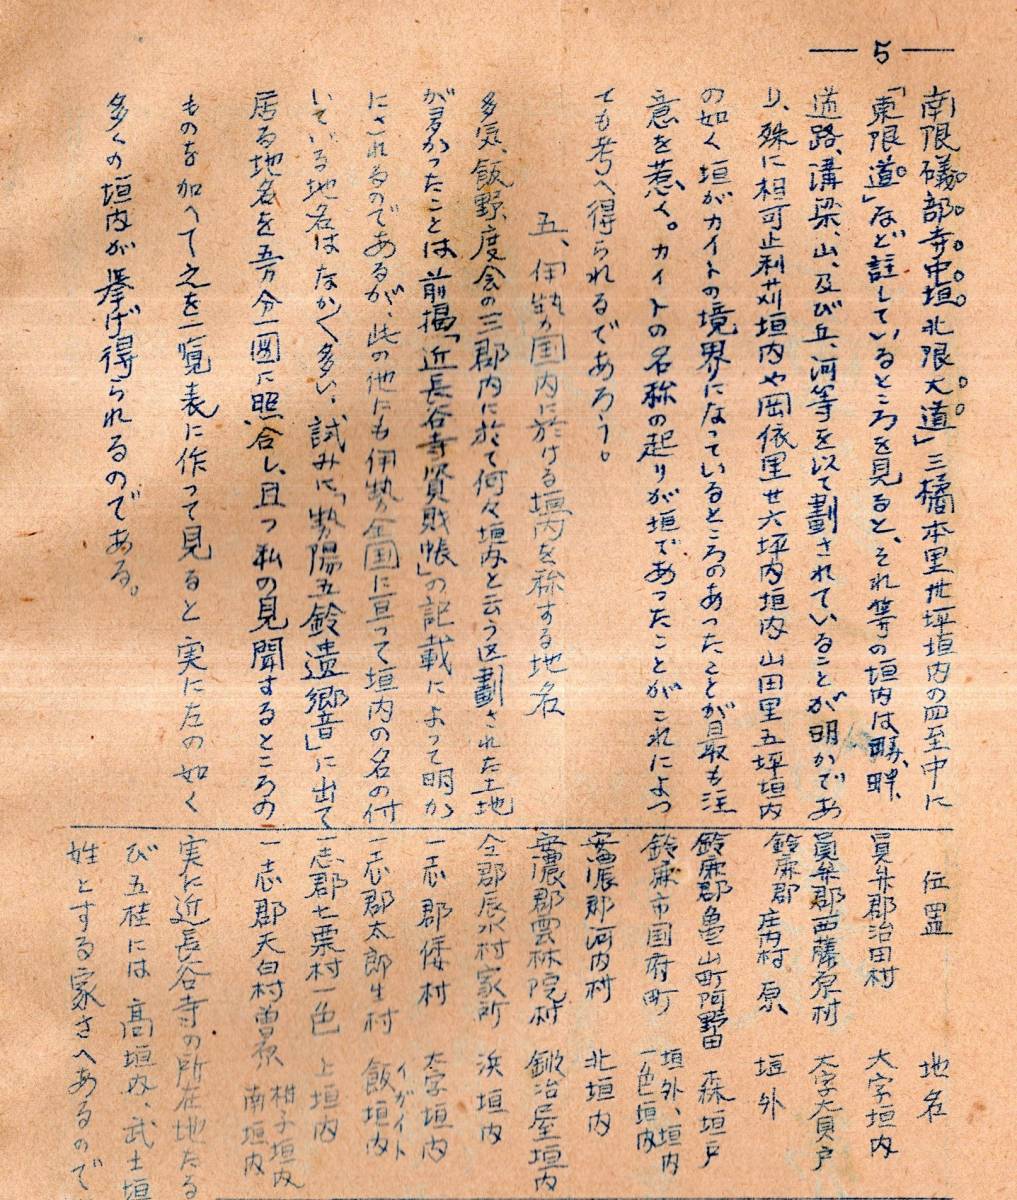 5
南限礒部寺中垣北限大道」三橋本里卅坪垣内の四至中に
「東限道」など註しているところを見ると、それ等の垣内は畷、畔、
道路、溝梁、山、及び丘、河等を以て劃されていることが明かであ
り、殊に相可止利苅垣内や岡依里廿六坪内垣内 山田里五坪垣内
の如く垣がカイトの境界になっているところのあったことが最も注
意を惹く。カイトの名称の起りが垣であったことがこれによっ
ても考へ得られるであろう。
五、伊勢国内に於ける垣内を称する地名
多気、飯野、度会の三郡内に於て何々垣内と云う区劃された土地
が多かったことは前掲「近長谷寺資財帳」の記載によって明か
にされるのであるが、此の他にも伊勢全国に亘って垣内の名の付
いている地名はなか〱多い、試みに「勢陽五鈴遺響」に出て
居る地名を五万分一図に照合し、且つ私の見聞するところの
ものを加へて之を一覧表に作って見ると実に左の如く
多くの垣内が挙げ得られるのである。
位置 地名
員弁郡治田村 大字垣内
員弁郡西藤原村 大字大貝戸
鈴鹿郡庄内村原 垣外
鈴鹿郡亀山町阿野田 森垣戸
鈴鹿市国府町 垣外、垣内 一色垣内
安濃郡河内村 北垣内
安濃郡雲林院村 鍛冶屋垣内
仝郡辰水村家所 浜垣内
一志郡倭村 大字垣内
一志郡太郎生村 飯垣内 イガイト
一志郡七栗村一色 上垣内
一志郡天白村曽原 柑子垣内 南垣内
実に近長谷寺の所在地たる
び五桂には高垣内、武士垣
姓とする家さへあるので